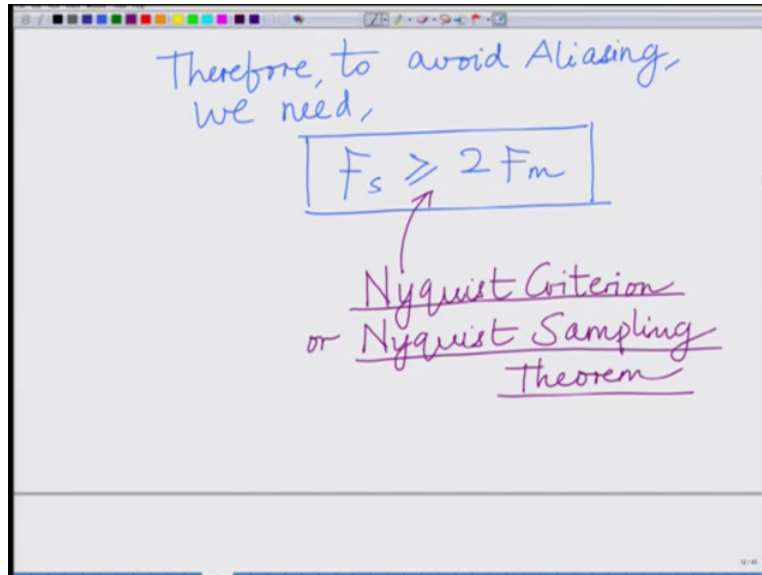 Therefore, to avoid Aliasing,
we need,
Fs ≥ 2 Fm
Nyquist Criterion
or Nyquist Sampling
Theorem